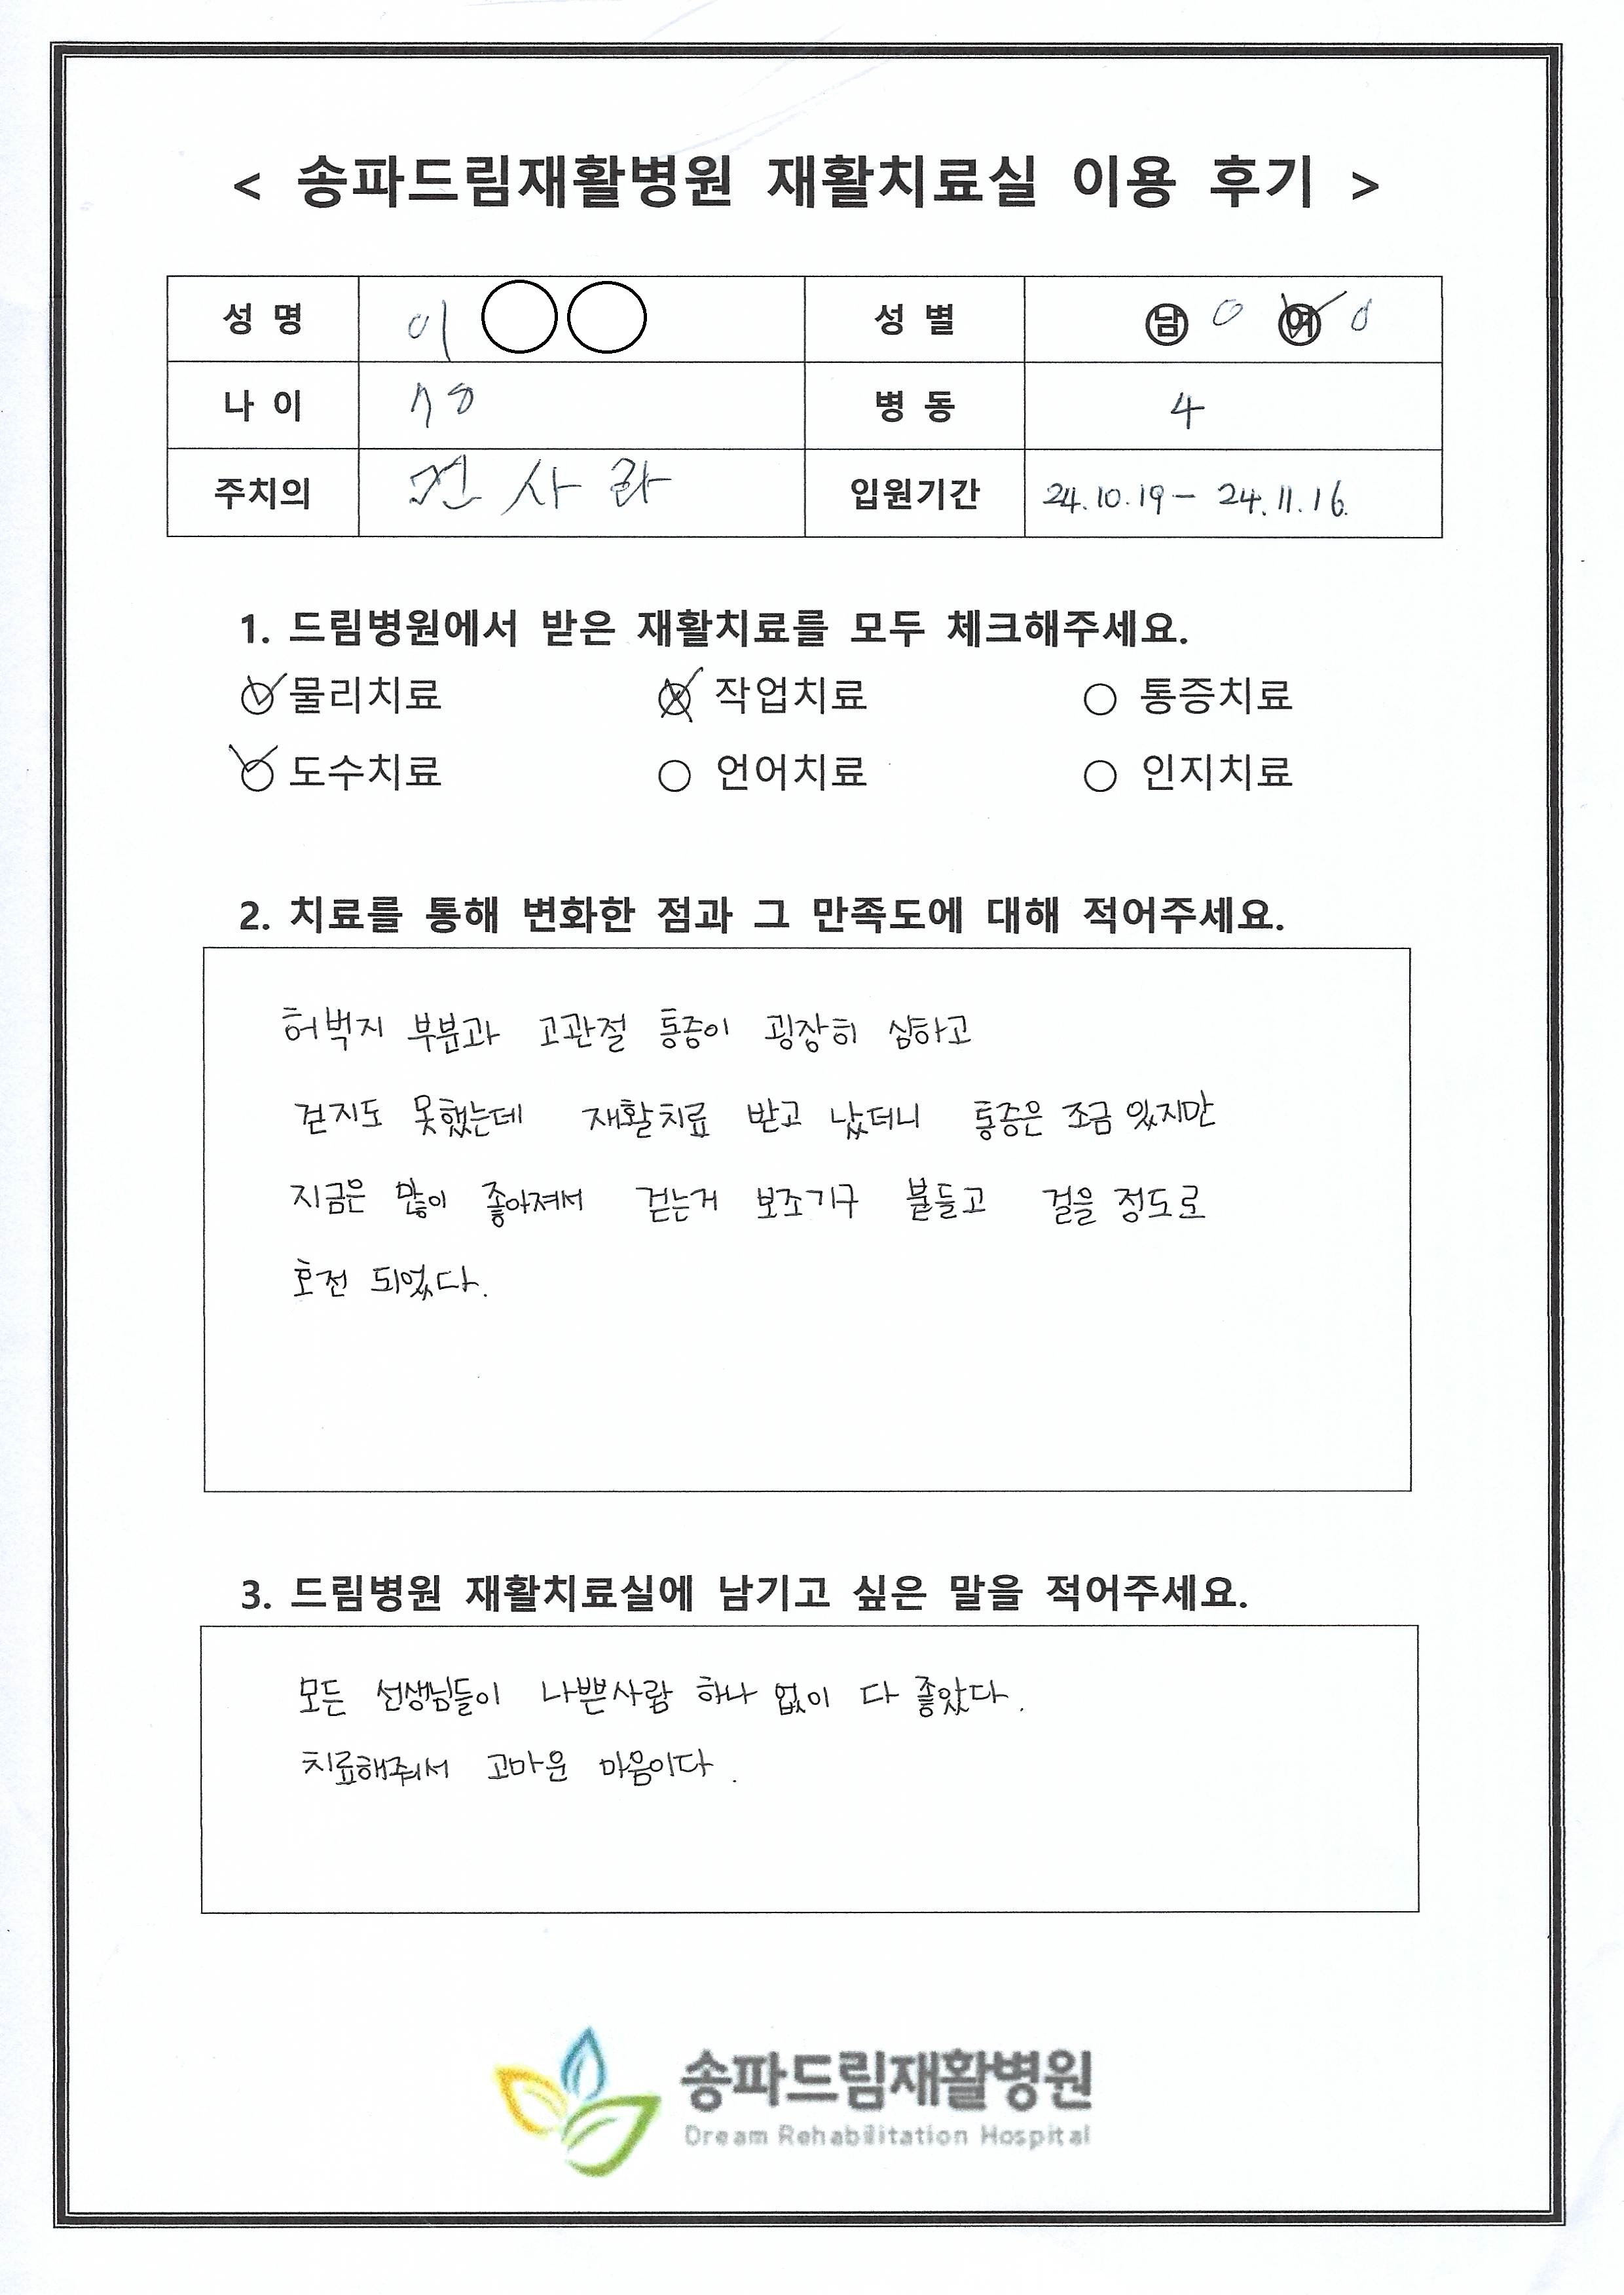 < 송파드림재활병원 재활치료실 이용 후기 >
성 명 이 ○○ 성 별 ㊚ 0 ㊛ 0
나 이 78 병 동 4
주치의 전사라 입원기간 24.10.19 - 24.11.16.
1. 드림병원에서 받은 재활치료를 모두 체크해주세요.
물리치료 작업치료 ○ 통증치료
도수치료 ○ 언어치료 ○ 인지치료
2. 치료를 통해 변화한 점과 그 만족도에 대해 적어주세요.
허벅지 부분과 고관절 통증이 굉장히 심하고
걷지도 못했는데 재활치료 받고 났더니 통증은 조금 있지만
지금은 많이 좋아져서 걷는거 보조기구 붙들고 걸을 정도로
호전 되었다.
3. 드림병원 재활치료실에 남기고 싶은 말을 적어주세요.
모든 선생님들이 나쁜사람 하나 없이 다 좋았다.
치료해줘서 고마운 마음이다.
송파드림재활병원
Dream Rehabilitation Hospital